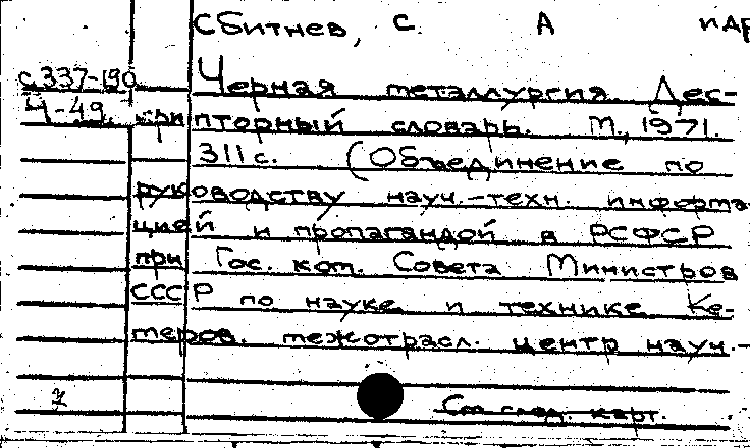 Сбитнев, С. А и др
с.337-190 Черная металлургия Дес-
Ч-49 крипторный словарь. М., 1971.
311 с. (Объединение по
руководству науч.-техн. информа
цией и пропагандой в РСФСР
при Гос. ком. Совета Министров
СССР по науке и технике Ке-
меров. межотрасл. центр науч.-
См след. карт.